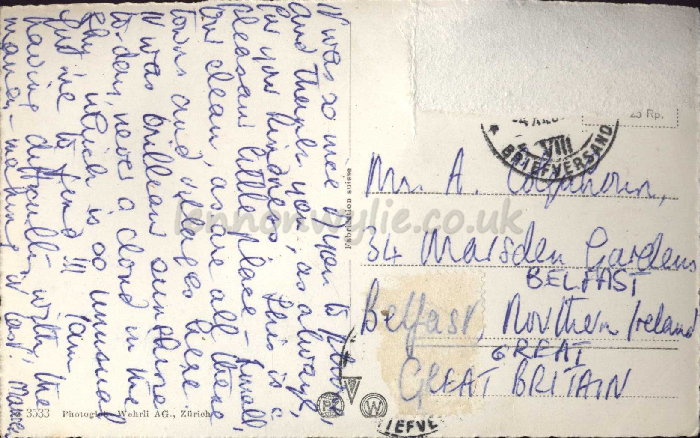 It was so nice of you to phone
and thank you, as always,
for your kindness. This is a
pleasant little place – small,
clean, as are all these
towns and villages here.
It was brilliant sunshine
to-day, never a cloud in the
sky, which is so unusual
for me to find!!! I am
having difficulty with the
money – making it last.
Fabrication suisse
3533 Photoglob-Wehrli AG., Zürich
P W
25 Rp.
VIII
BRIEFVERSAND
Mr. A.
34 Marsden Gardens
BELFAST
Belfast, Northern Ireland
GREAT
GREAT BRITAIN
BRIEFVE
lennonwylie.co.uk